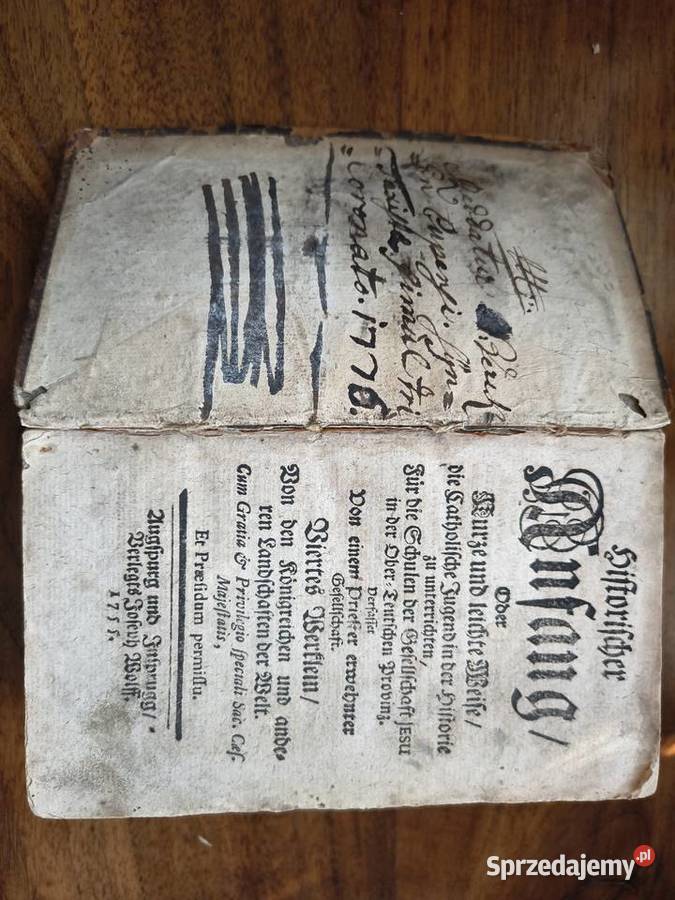 Syn=
simul
Coronato.
Historischer
Anfang/
Oder
Kurze und leichte Weise/
die Catholische Jugend in der Historie
zu unterrichten,
Für die Schulen der Gesellschaft JESU
in der Ober-Teutschen Provinz.
Verfasset
Von einem Priester erwehnter
Gesellschaft.
Viertes Werklein/
Von den Königreichen und ande-
ren Landschaften der Welt.
Cum Gratia & Privilegio speciali Sac. Cæs.
Majestatis,
Et Præsidum permissu.
Augspurg und Insprugg/
Verlegts Joseph Wolff.
1755.
Sprzedajemy.pl